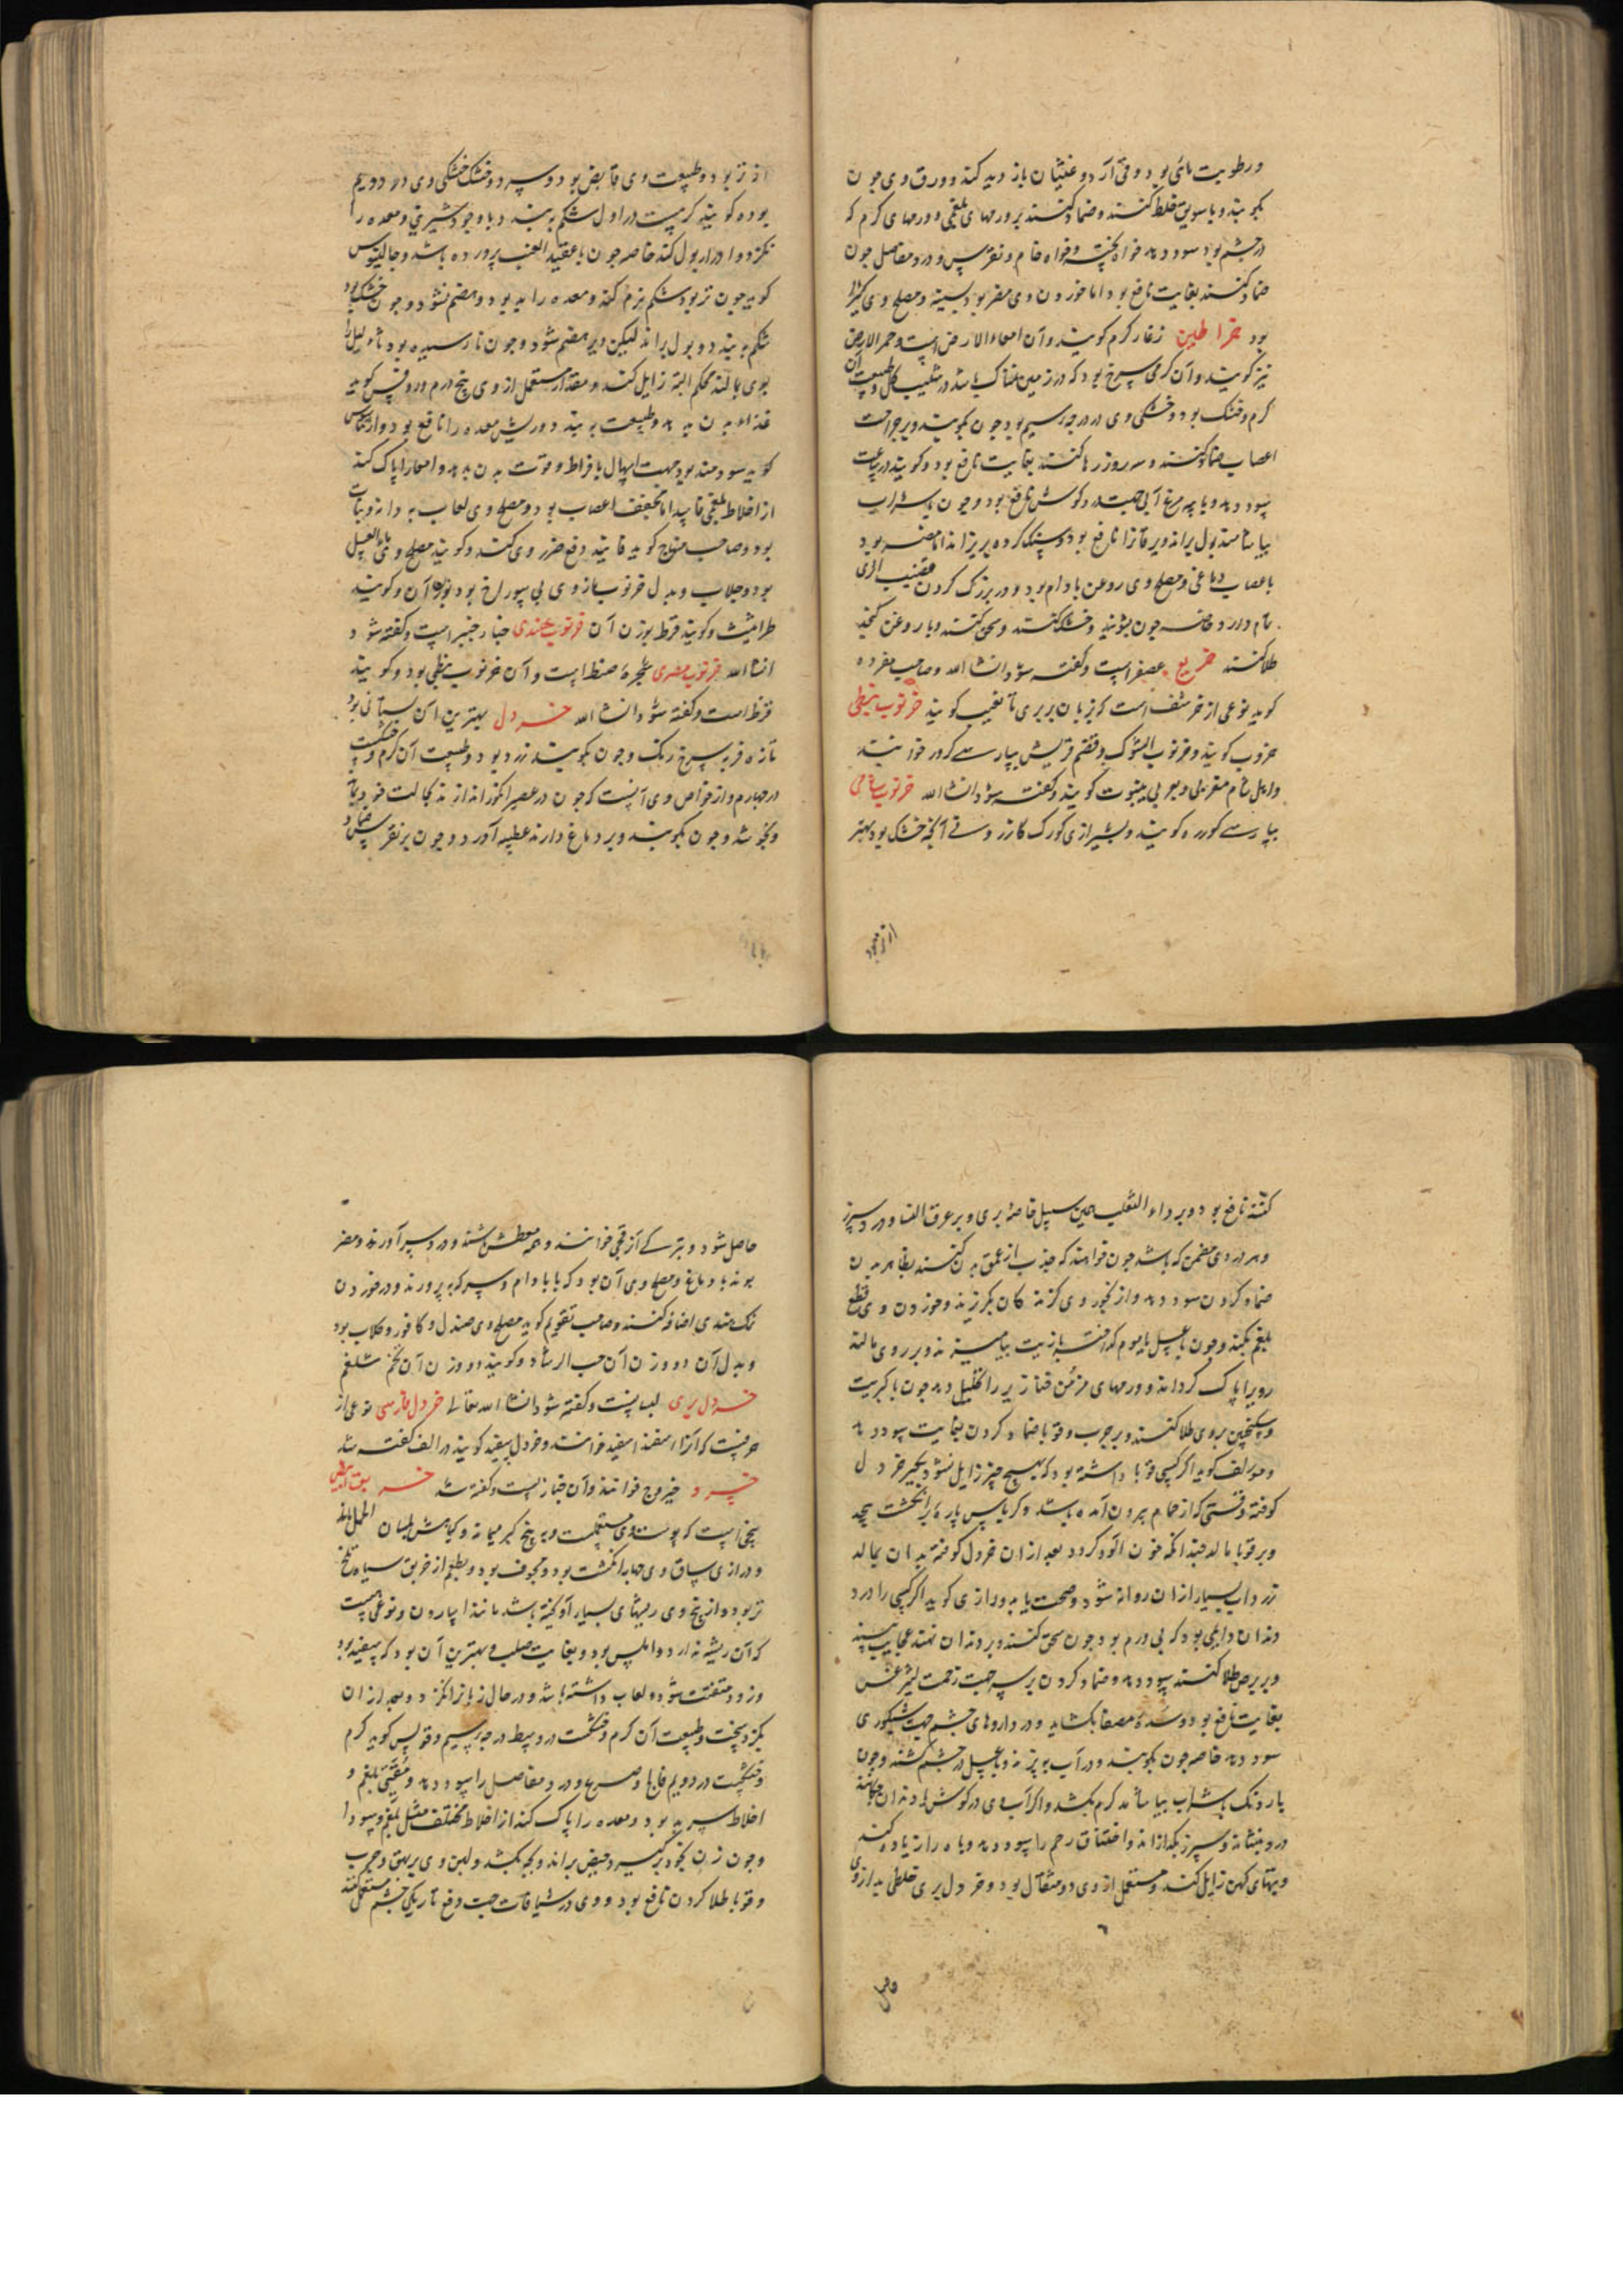 و رطوبت مائی بود و قی آرد و غثیان باز دید کند و ورق وی چون
بکوبند و با سویق خلط کنند و ضماد کنند بر ورمهای بلغمی و ورمهای کرم که
در چشم بود سود دهد خواه پخته و خواه خام و نقرس و درد مفاصل چون
ضماد کنند بغایت نافع بود اما خوردن وی مضر بود بسینه و مصلح وی کثیرا
بود خراطین زغار کرم کویند و آن امعاء الارض است و حمر الارض
نیز کویند و آن کرمی سرخ بود که در زمین نمناک باشد در شیب کل و طبیعت آن
کرم و خشک بود و خشکی وی در درجه سیم بود چون بکوبند و بر جراحت
اعصاب ضماد کنند و سه روز رها کنند بغایت نافع بود و کویند در ساعت
سود دهد و با پیه مرغ آبی جهت درد کوش نافع بود و چون با شراب
بیاشامند بول براند و یرقان را نافع بود و سنک کرده بریزاند اما مضر بود
باعصاب دماغی و مصلح وی روغن بادام بود و در بزرک کردن قضیب اثری
تمام دارد خاصه چون بشویند و خشک کنند و سحق کنند و با روغن کنجد
طلا کنند خریع عصفر است و کفته شود انشا الله و صاحب مفرده
کوید نوعی از خرشف است که بزبان بربری تاغیب کویند خرنوب نبطی
خروب کویند و خرنوب الشوک و قضم قریش بپارسی کور خوانند
و اهل شام مغربی و عربی ینبوت کویند و کفته شود انشا الله خرنوب شامی
بپارسی کورزه کویند و بشیرازی کورک کازرونی آنچه خشک بود بهتر
از تر بود
از تر بود و طبیعت وی قابض بود و سرد و خشک خشکی وی در دویم
بود و کویند کرمست در اول شکم ببندد با وجود شیرینی و معده را
نکزد و ادرار بول کند خاصه چون با عقید العنب پرورده باشد و جالینوس
کوید چون تر بود شکم نرم کند و معده را بد بود و هضم نشود و چون خشک بود
شکم ببندد و بول براند لیکن دیر هضم شود و چون نارسیده بود ثآلیل را
بوی بمالند محکم البته زایل کند و مقدار مستعمل از وی پنج درم و روفس کوید
غذاء بدن بد دهد و طبیعت ببندد و ریش معده را نافع بود و ارماس
کوید سودمند بود جهت اسهال بافراط و قوت بدن بدهد و امعا را پاک کند
از اخلاط بلغمی فاسد اما مجفف اعصاب بود و مصلح وی لعاب به دانه و نبات
بود و صاحب منهاج کوید فانید دفع ضرر وی کند و کویند مصلح وی ماء العسل
بود و جلاب و بدل خرنوب مازوی بی سوراخ بود بوزن آن و کویند
طراثیث و کویند قرظ بوزن آن خرنوب هندی خیار چنبر است و کفته شود
انشا الله خرنوب مصری شجره صنط است و آن خرنوب نبطی بود و کویند
قرظ است و کفته شود انشا الله خردل بهترین آن بستانی بود
تازه فربه سرخ رنک و چون بکوبند زرد بود و طبیعت آن کرم و خشکست
در چهارم و از خواص وی آنست که چون در عصیر انکور اندازند بحالت خود بماند
و نجوشد و چون بکوبند و بر دماغ دارند عطسه آورد و چون بر نقرس ضماد
کنند نافع بود و بر داء الثعلب همین سبیل خاصه بری و بر عرق النسا و درد سرز
و هر دردی مضمن که باشد چون خواهند که جذب از عمق بدن کنند بظاهر بدن
ضماد کردن سود دهد و از بخور وی کزندکان بکریزند و خوردن وی قطع
بلغم بکند و چون با عسل یا موم کداخته یا زیت بیامیزند و بر روی مالند
روی را پاک کرداند و ورمهای مزمن خنازیر را تحلیل دهد چون با کبریت
و سکنجبین بر وی طلا کنند و بر جرب و قوبا ضماد کردن بغایت سود دهد
و مولف کوید اکر کسی قوبا داشته بود که بهیچ چیز زایل نشود بکیر خردل
کوفته وقتی که از حمام بیرون آمده باشد و کرباس پاره بر انکشت پیچد
و بر قوبا مالد چندانکه خون آلود کردد بعد از ان خردل کوفته بدان بمالد
زرداب بسیار از ان روانه شود و صحت یابد و رازی کوید اکر کسی را درد
دندان دایمی بود که بی ورم بود چون سحق کنند و بر دندان نهند عجایب بیند
و بر برص طلا کنند سود دهد و ضماد کردن بر سر جهت زحمت لیثرغس
بغایت نافع بود و سده مصفا بکشاید و در داروهای چشم جهت شبکوری
سود دهد خاصه چون بکوبند و در آب بپزند و با عسل در چشم کشند و چون
یاردنک با شراب بیاشامند کرم بکشد و اکر آب وی در کوش چکانند درد دندان
درد بنشاند و سپرز بکدازاند و اختناق رحم را سود دهد و باه را زیاده کند
و تبهای کهن زایل کند و مستعمل از وی دو مثقال بود و خردل بری خلطی بد از وی
حاصل
حاصل شود و بترکی آن را قجی خوانند و همه معطش باشند و درد سر آورند و مضر
بوند بدماغ و مصلح وی آن بود که با بادام و سرکه بپرورند و در خوردن
نمک هندی اضافه کنند و صاحب تقویم کوید مصلح وی صندل و کافور و کلاب بود
و بدل آن دو وزن آن حب الرشاد و کویند دو وزن آن تخم شلغم
خردل بری لبسانست و کفته شود انشا الله تعالی خردل فارسی نوعی از
حرفست که آن را اسفند اسفید خوانند و خردل سفید کویند در الف کفته شد
خسرود خیروج خوانند و آن خبازیست و کفته شد
بیخی است که پوست وی مستعملست و به بیخ کبر میماند
و درازی ساق وی چهار انکشت بود و مجوف بود و بطعم از خربق سیاه تلخ
تر بود و از بیخ وی ریشهای بسیار آویخته باشد مانند اسارون و نوعی هست
که آن ریشه ندارد و املس بود و بغایت صلب و بهترین آن بود که سفید بود
و زود متفتت شود و لعاب داشته باشد و در حال زبان را نکزد و بعد از ان
بکزد سخت و طبیعت آن کرم و خشکست در وسط درجه سیم و قولس کوید کرم
و خشکست در دویم فالج و صرع و درد مفاصل را سود دهد و مقیی بلغم و
اخلاط سرد بود و معده را پاک کند از اخلاط مختلف مثل بلغم و سودا
و چون زن بخود برکیرد حیض براند و بچه بکشد و لبن وی بر بهق و جرب
و قوبا طلا کردن نافع بود و وی در شیافات جهت دفع تاریکی چشم مستعمل کنند